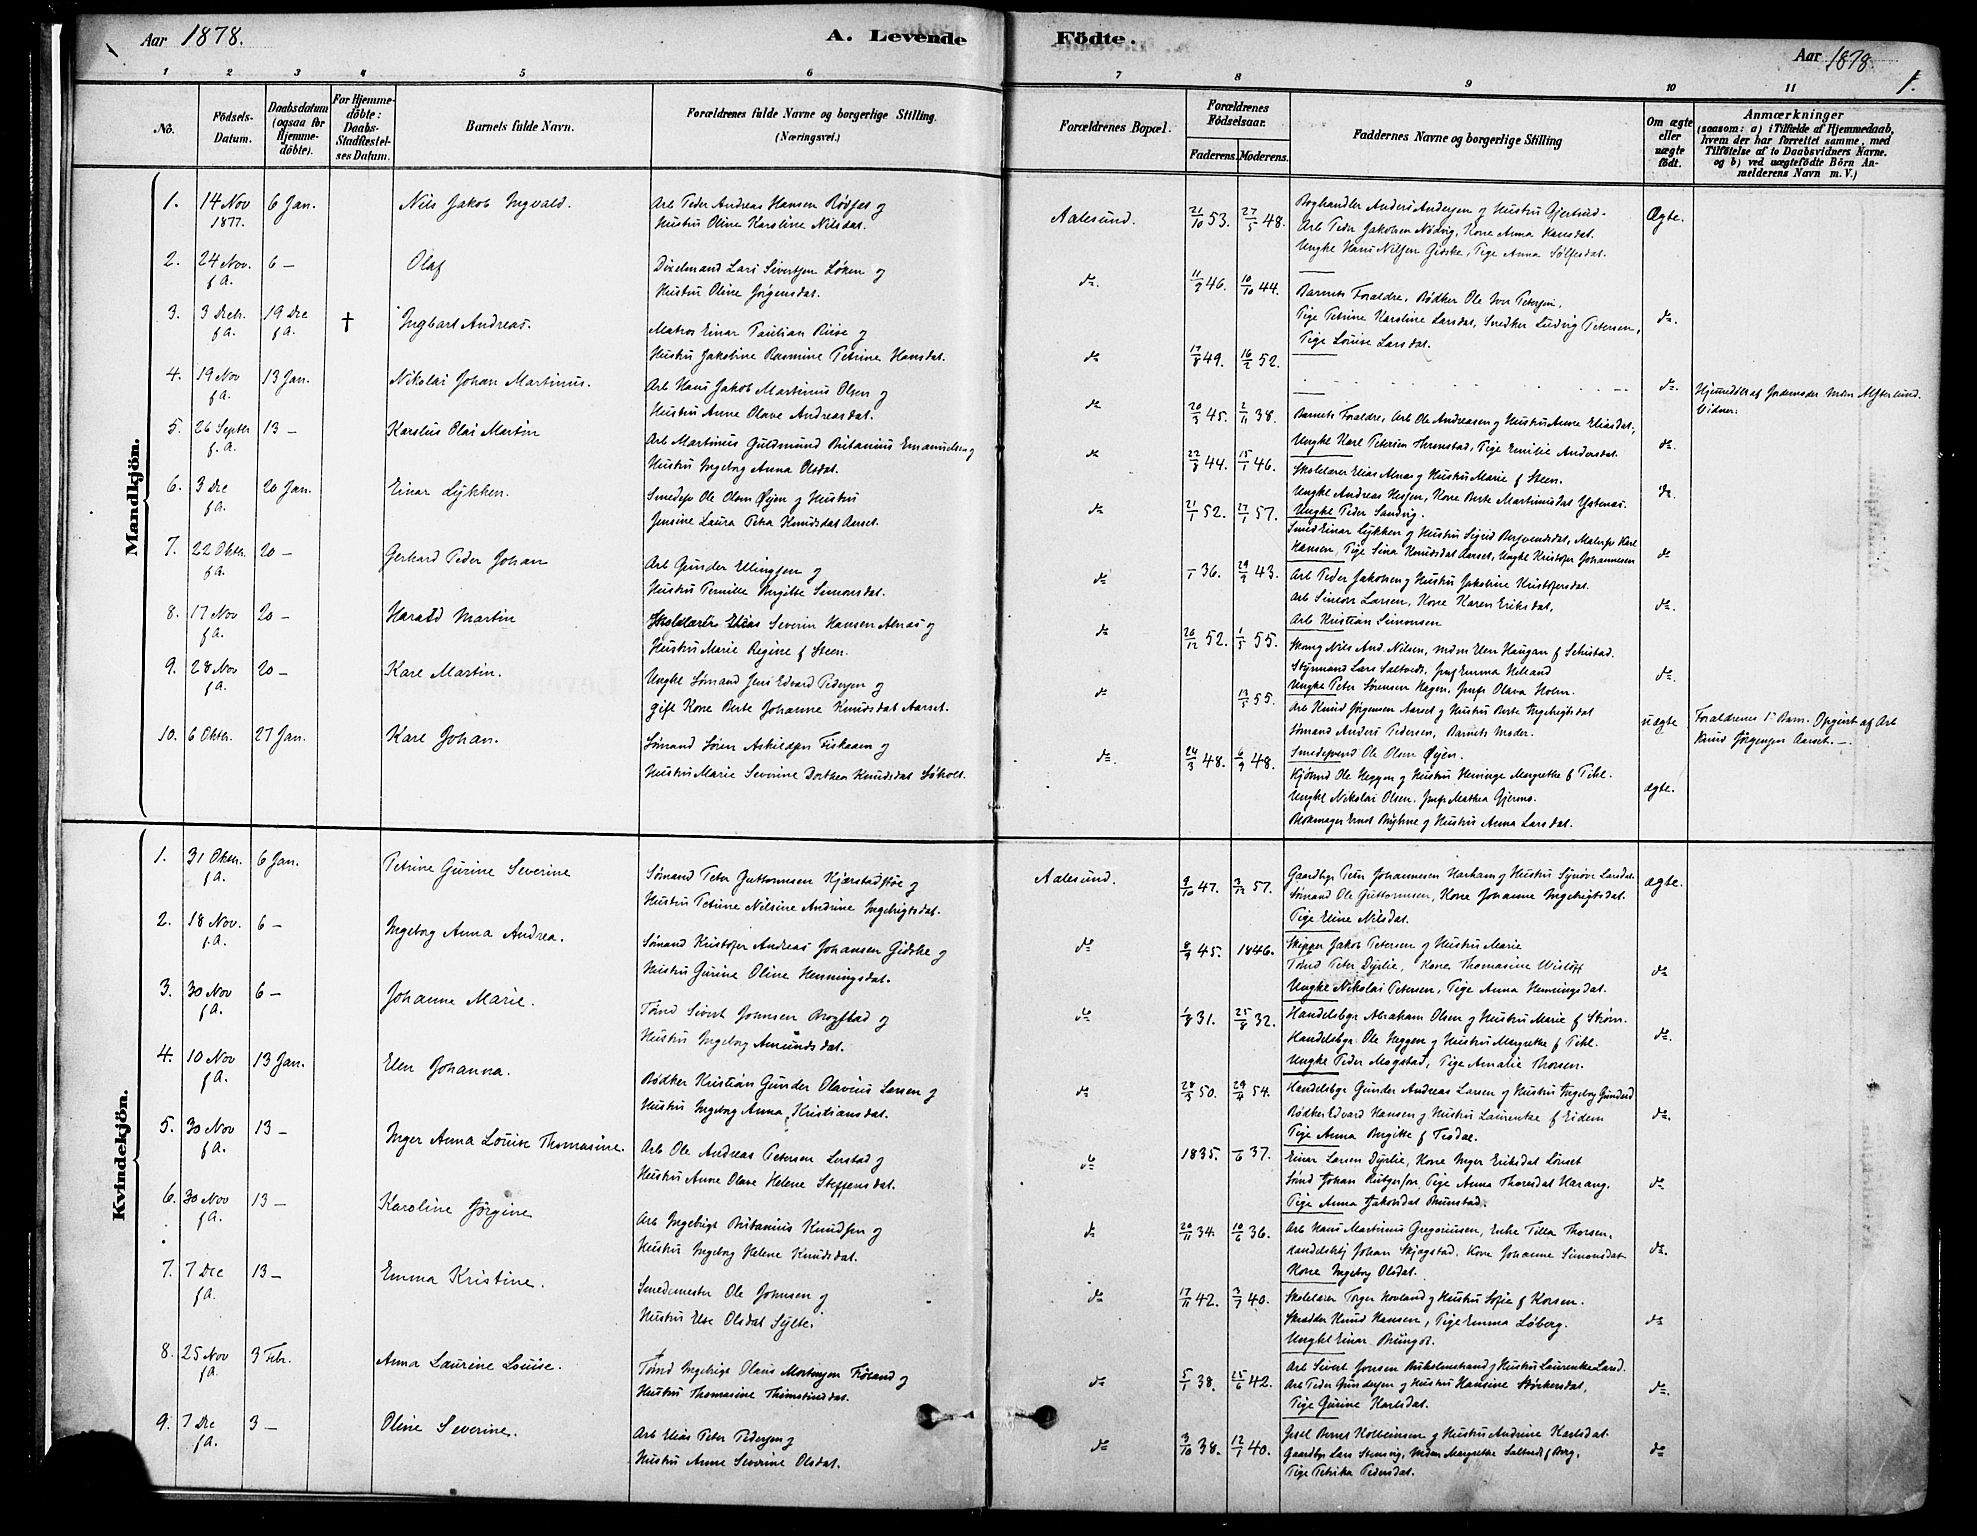 Aar 1878.
A. Levende Födte.
Aar 1878.
1.
1 2 3 4 5 6 7 8 9 10 11
No.
Födsels-Datum.
Daabsdatum (ogsaa for Hjemme-döbte).
For Hjemme-döbte: Daabs-Stadfæstel-ses Datum.
Barnets fulde Navn.
Forældrenes fulde Navne og borgerlige Stilling. (Næringsvei.)
Forældrenes Bopæl.
Forældrenes Födselsaar.
Faderens. Moderens.
Faddernes Navne og borgerlige Stilling
Om ægte eller uægte födt.
Anmærkninger
(saasom: a) i Tilfælde af Hjemmedaab, hvem der har forrettet samme, med Tilföielse af to Daabsvidners Navne. og b) ved uægtefödte Börn An-melderens Navn m. V.)
Mandkjön.
1. 14 Nov 1877. 6 Jan. Nils Jakob Ingvald.
Arb Peder Andreas Hansen Rödset og
Hustru Oline Karoline Nilsdat.
Aalesund. 21/10 53. 27/5 48.
Boghandler Anders Andersen og Hustru Gjertrud.
Arb Peder Jakobsen Nødvig, Kone Anna Hansdat.
Ungkl Hans Nilsen Gidske, Pige Anna Sölfesdat.
Ægte.
2. 24 Nov. f.A. 6 – Olaf
Dixelmand Lars Sivertsen Løken og
Hustru Oline Jørgensdat.
do. 11/2 46. 10/10 44.
Barnets Forældre, Bødker Ole Iver Petersen,
Pige Petrine Karoline Larsdat, Snedker Ludvig Petersen,
Pige Louise Larsdat.
do.
3. 3 Decb. f.A. 19 Dec f.A. † Ingbart Andreas.
Matros Einar Paulian Riise og
Hustru Jakobine Rasmine Petrine Hansdat.
do 17/8 49. 16/2 52.
do. Hjemmedöbt af Jordemoder Mdm Alfterlund.
Vidner:
4. 19 Nov f.A. 13 Jan. Nikolai Johan Martinus.
Arb Hans Jakob Martinus Olsen og
Hustru Anne Olave Andreasdat.
do 20/3 45. 2/11 38.
Barnets Forældre, Arb Ole Andreasen og Hustru Anne Eliasdat,
Ungkl Karl Petersen Thrmstad, Pige Emilie Andersdat.
do.
5. 26 Septbr f.A. 13 – Karolus Olai Martin
Arb Martinus Guldmund Britanius Emanuelsen og
Hustru Ingeborg Anna Olsdat.
do 22/8 44. 15/1 46.
Skolelærer Elias Alnæs og Hustru Marie f Steen.
Ungkl Andreas Hessen, Kone Berte Martinusdat Ystenæs.
Ungkl Peder Sandvig.
do.
6. 3 Dec f.A. 20 Jan. Einar Lykken.
Smedsv Ole Olsen Øyen og Hustru
Jensine Laura Petra Knudsdat Aarset.
do 21/1 52. 27/1 57.
Smed Einar Lykken og Hustru Sigrid Bergsvendsdat, Malersv Karl
Hansen, Pige Sina Knudsdat Aarset, Ungkl Kristofer Johannesen
do
7. 22 Oktbr. f.A. 20 – Gerhard Peder Johan
Arb Gunder Ellingsen og
Hustru Pernille Birgitte Simonsdat.
do 36. 29/9 43.
Arb Peder Jakobsen og Hustru Jakobine Kristofersdat.
Arb Simon Larsen, Kone Karen Eriksdat,
Arb Kristian Simonsen
do.
8. 17 Nov f.A. 20 – Harald Martin
Skolelærer Elias Severin Hansen Alnæs og
Hustru Marie Regine f Steen.
do 26/12 52. 1/5 55.
Skomg Nils And. Nilsen, Mdm Elen Haugan f Schistad.
Styrmand Lars Saltvedt, Jomf Emma Nelland
Ungkl Peter Sørensen Hagen, Jomfr Olava Holm.
do.
9. 28 Nov f.A. 20 – Karl Martin.
Ungkl Sømand Jens Edvard Pedersen og
gift Kone Berte Johanne Knudsdat Aarset.
do 13/5 55.
Arb Knud Jørgensen Aarset og Hustru Berte Ingebrigtsdat
Sømand Anders Pedersen, Barnets Moder.
Smedsvend Ole Olsen Øyen.
uægte Forældrenes 1ste Barn. Opgivet af Arb
Knud Jørgensen Aarset.
10. 6 Oktbr. 27 Jan. Karl Johan.
Sømand Søren Askildsen Fiskaaen og
Hustru Marie Severine Dorthea Knudsdat Søholt.
do 24/3 48. 6/9 48.
Kjømd Ole Neggen og Hustru Henninge Margrethe f Pihl.
Ungkl Nikolai Olsen, Jomfr Mathea Gjerms.
Blokmager Ernst Bryhne og Hustru Anna Larsdat.
ægte.
Kvindekjön.
1. 31 Oktbr. f.A. 6 Jan. Petrine Gurine Severine
Sømand Peter Guttormsen Kjærstadstøe og
Hustru Petrine Nilsine Andrine Ingebrigtsdat.
Aalesund. 9/10 47. 3/12 57.
Gaardbgr Peter Johannesen Harham og Hustru Synøve Larsdat
Sømand Ole Guttormsen, Kone Johanne Ingebrigtsdat.
Pige Eline Nilsdat.
ægte.
2. 18 Nov. f.A. 6 – Ingeborg Anna Andrea.
Sømand Kristofer Andreas Johansen Gidske og
Hustru Gurine Oline Henningsdat.
do 8/9 45. 1846.
Skipper Jakob Petersen og Hustru Marie
Tømd Peter Dyrlie, Kone Thomasine Wisløff
Ungkl Nikolai Petersen, Pige Anna Henningsdat.
do
3. 30 Nov f.A. 6 – Johanne Marie.
Tømd Sivert Johnsen Brogstad og
Hustru Ingeborg Amundsdat.
do 1/8 31. 25/8 32.
Handelsbgr Abraham Olsen og Hustru Marie f Strøm.
Handelsbgr Ole Neggen og Hustru Margrethe f Pihl.
Ungkl Peder Mogstad, Pige Amalie Thorsen.
do.
4. 10 Nov f.A. 13 Jan. Elen Johanna.
Bødker Kristian Gunder Olavius Larsen og
Hustru Ingeborg Anna Kristiansdat.
do 28/3 50. 29/4 54.
Handelsbgr Gunder Andreas Larsen og Hustru Ingeborg Gundersd
Bødker Edvard Hansen og Hustru Laurentze f Eidem
Pige Anna Birgitte f Tisdal.
do.
5. 30 Nov f.A. 13 – Inger Anna Louise Thomasine.
Arb Ole Andreas Petersen Lerstad og
Hustru Anne Olave Helene Steffensdat.
do 1835. /6 37.
Einar Larsen Dyrlie, Kone Inger Eriksdat Lønset
Sømd Johan Rutgersen, Pige Anna Thoresdat Harang,
Pige Anna Jakobsdat Brunstad.
do
6. 30 Nov f.A. 13 – Karoline Jørgine
Arb Ingebrigt Britanius Knudsen og
Hustru Ingeborg Helene Knudsdat.
do 20/11 34. 10/6 36.
Arb Hans Martinus Gregoriusen, Enke Tilla Thorsen,
Handelsbtj Johan Skjegstad, Kone Johanne Simonsdat
Kone Ingeborg Olsdat.
do.
7. 7 Dec f.A. 13 – Emma Kristine.
Smedemester Ole Johnsen og
Hustru Else Olsdat Sylte.
do 17/11 42. 3/7 40.
Skolelærer Torger Hovland og Hustru Sofie f Korsen.
Skrædder Knud Hansen, Pige Emma Løberg.
Ungkl Einar Brungot.
do
8. 25 Nov f.A. 3 Febr. Anna Laurine Louise.
Tømd Ingebrigt Olaus Mortensen Føland og
Hustru Thomasine Thimotheusdat.
do 5/1 38. 25/6 42.
Arb Sivert Jonsen Buholmstrand og Hustru Laurentze Larsd.
Arb Peder Gundersen og Hustru Hansine Størkersdat,
Pige Gurine Karlsdat.
do.
9. 7 Dec f.A. 3 – Oline Severine.
Arb Elias Peter Pedersen og
Hustru Anne Severine Olsdat.
do 3/10 38. 12/1 40.
Gesel Bernt Kolbeinsen og Hustru Andrine Karlsdat.
Gaardbgr Lars Stensvig, Mdm Margrethe Saltvedt f Berg,
Pige Petrika Pedersdat.
do